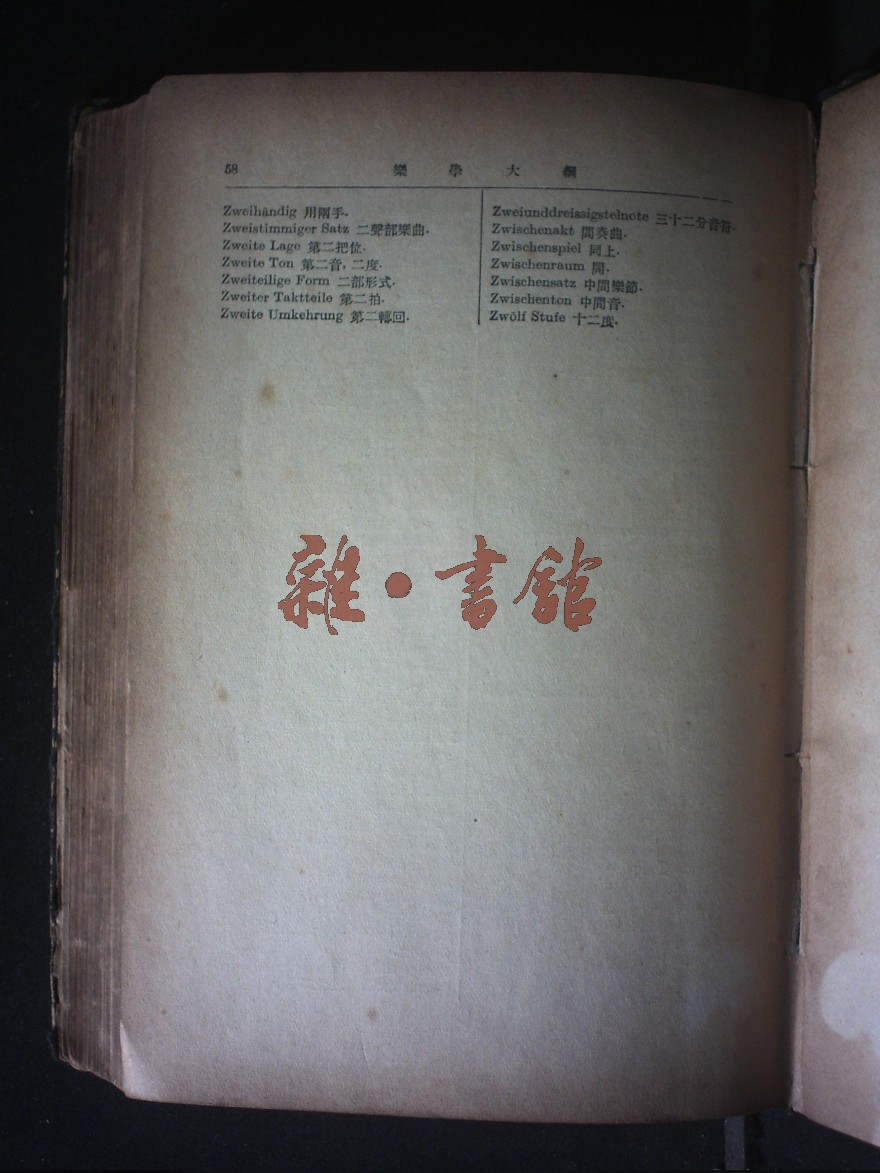 58
樂學大綱
Zweihändig 用兩手.
Zweistimmiger Satz 二聲部樂曲.
Zweite Lage 第二把位.
Zweite Ton 第二音, 二度.
Zweiteilige Form 二部形式.
Zweiter Taktteile 第二拍.
Zweite Umkehrung 第二轉回.
Zweiunddreissigstelnote 三十二分音符.
Zwischenakt 間奏曲.
Zwischenspiel 同上.
Zwischenraum 間.
Zwischensatz 中間樂節.
Zwischenton 中間音.
Zwölf Stufe 十二度.
雜·書館